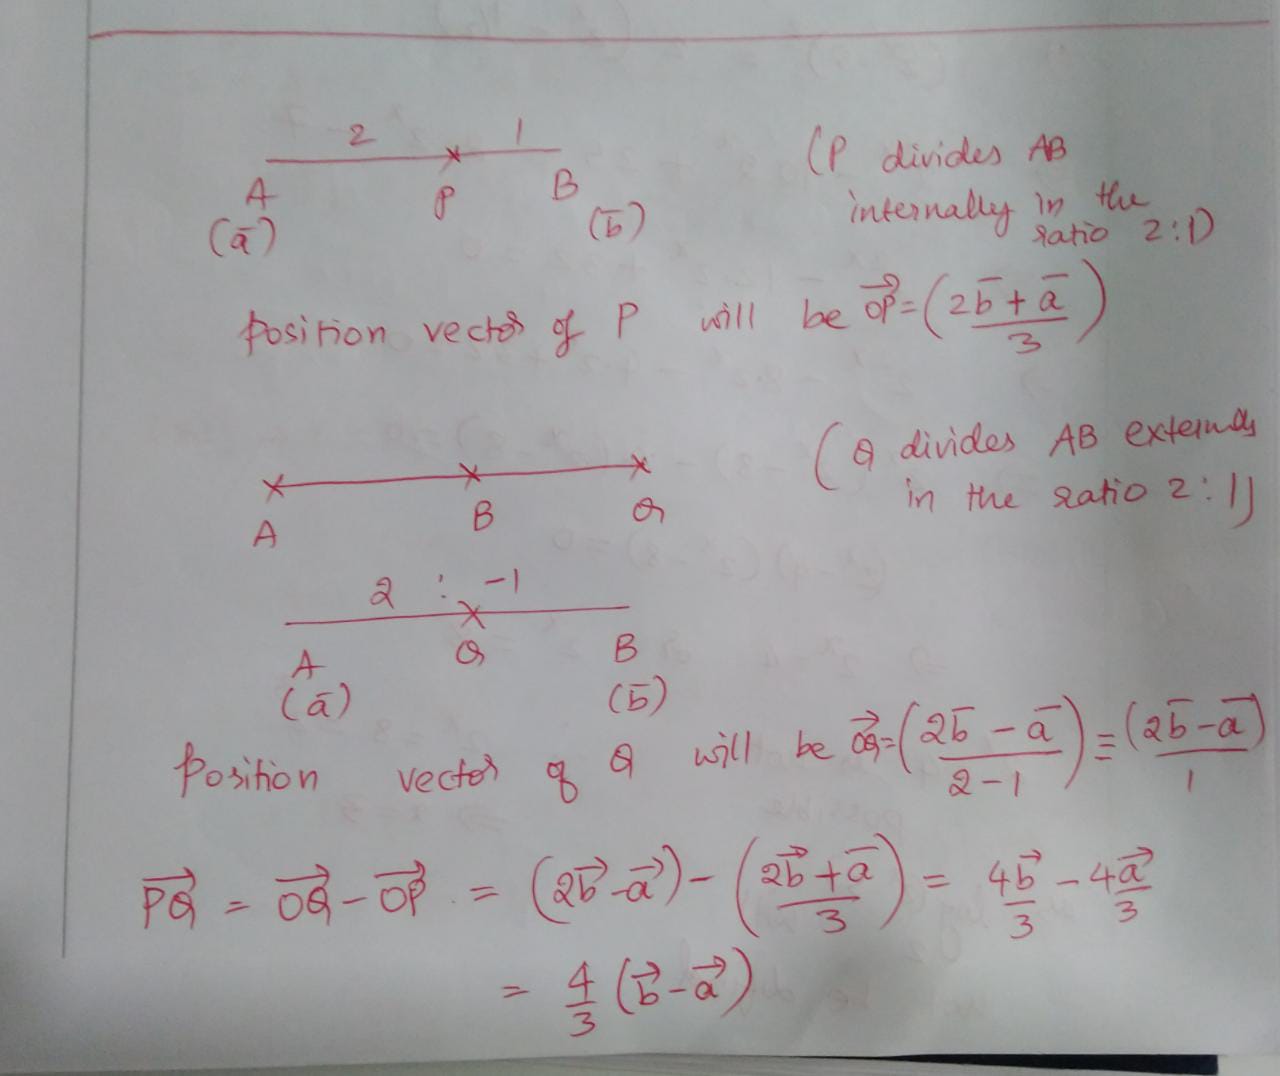 2 1
A P B
(ā) (b̄)
(P divides AB
internally in the
ratio 2:1)
position vector of P will be \overrightarrow{OP}=(\frac{2b̄+ā}{3})
A B Q
(Q divides AB externally
in the ratio 2:1)
2 : -1
A Q B
(ā) (b̄)
Position vector of Q will be \overrightarrow{OQ}=(\frac{2b̄-ā}{2-1})=\frac{(2b̄-ā)}{1}
\overrightarrow{PQ} = \overrightarrow{OQ}-\overrightarrow{OP} = (2\vec{b}-\vec{a})-(\frac{2\vec{b}+ā}{3}) = \frac{4\vec{b}}{3}-\frac{4\vec{a}}{3}
= \frac{4}{3}(\vec{b}-\vec{a})